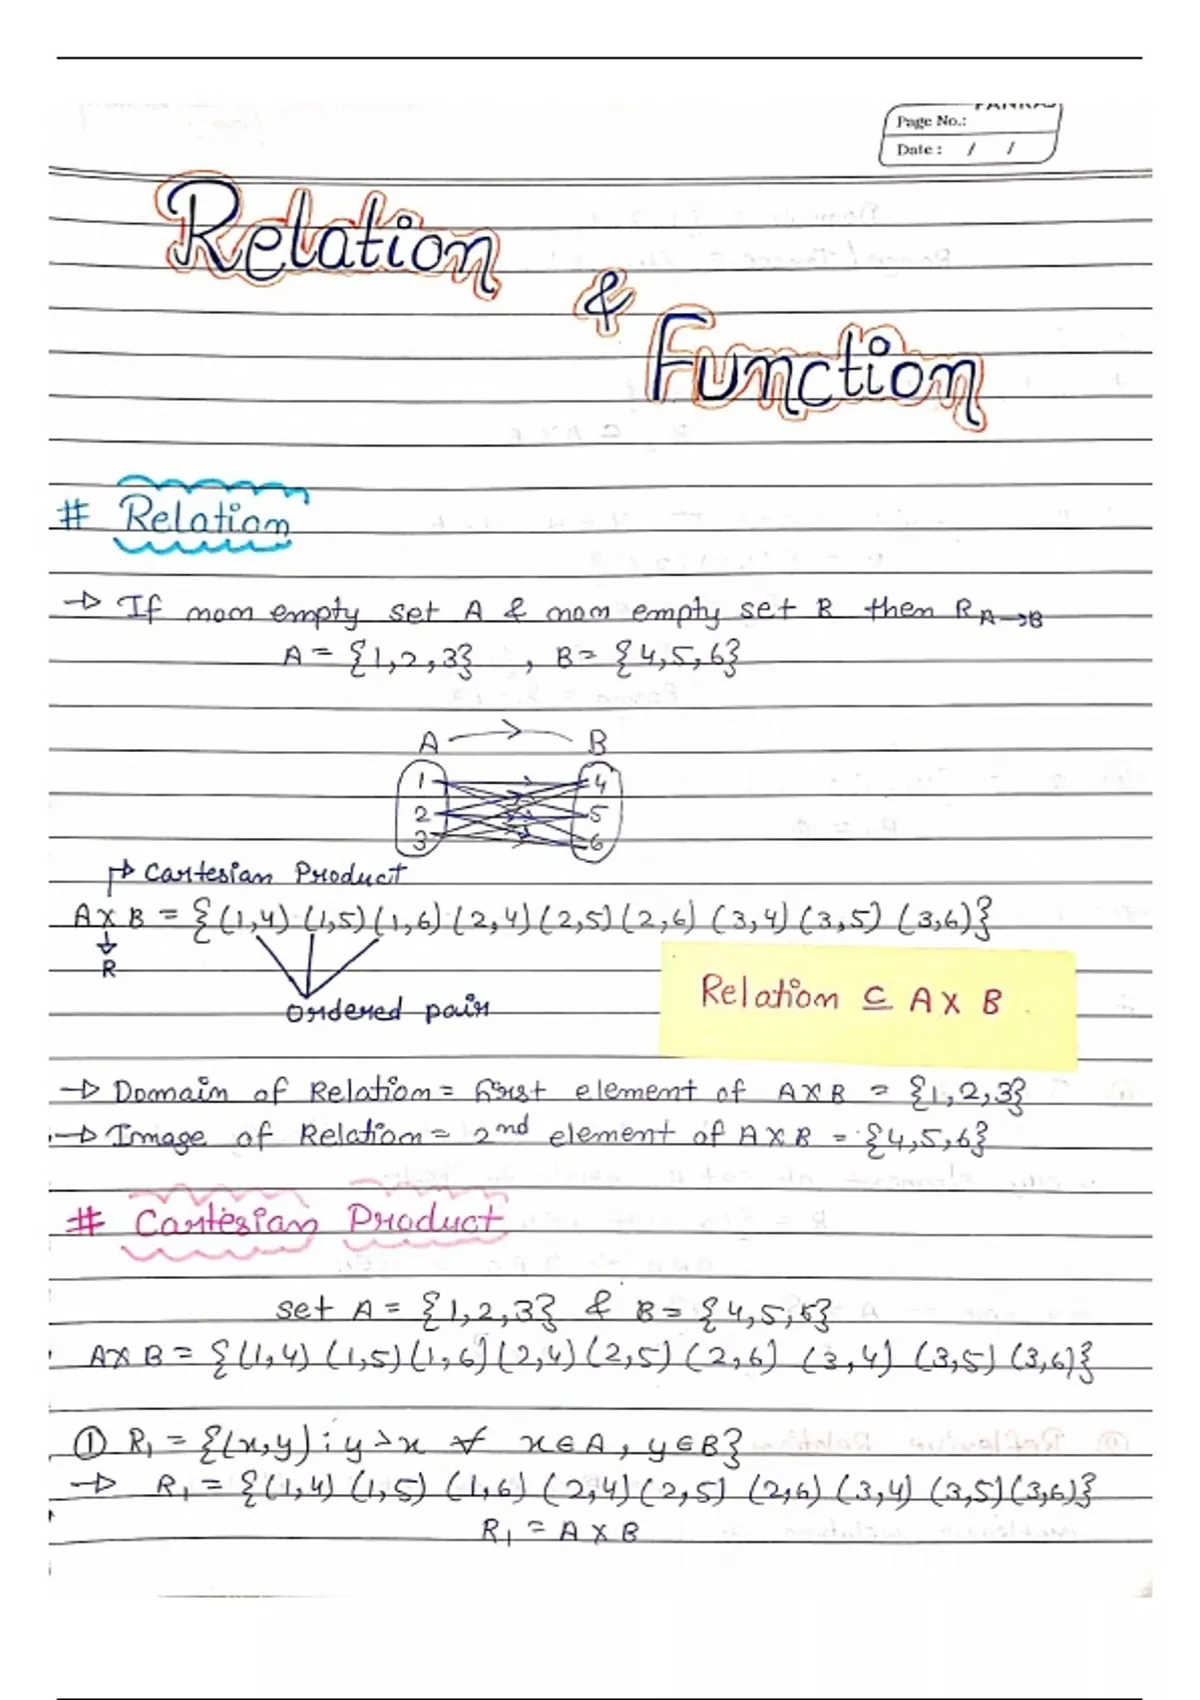 PANKAJ
Page No.:
Date : / /
Relation
&
Function
# Relation
→ If non empty set A & non empty set B then R A→B
A = {1,2,3} , B = {4,5,6}
A → B
1 4
2 5
3 6
↱ Cartesian Product
A x B = {(1,4) (1,5) (1,6) (2,4) (2,5) (2,6) (3,4) (3,5) (3,6)}
↓
R
ordered pair
Relation ⊆ A x B
→ Domain of Relation = first element of A x B = {1,2,3}
→ Image of Relation = 2nd element of A x B = {4,5,6}
# Cartesian Product
set A = {1,2,3} & B = {4,5,6}
A x B = {(1,4) (1,5) (1,6) (2,4) (2,5) (2,6) (3,4) (3,5) (3,6)}
① R₁ = {(x,y) : y > x ∀ x ∈ A , y ∈ B}
→ R₁ = {(1,4) (1,5) (1,6) (2,4) (2,5) (2,6) (3,4) (3,5) (3,6)}
R₁ = A x B